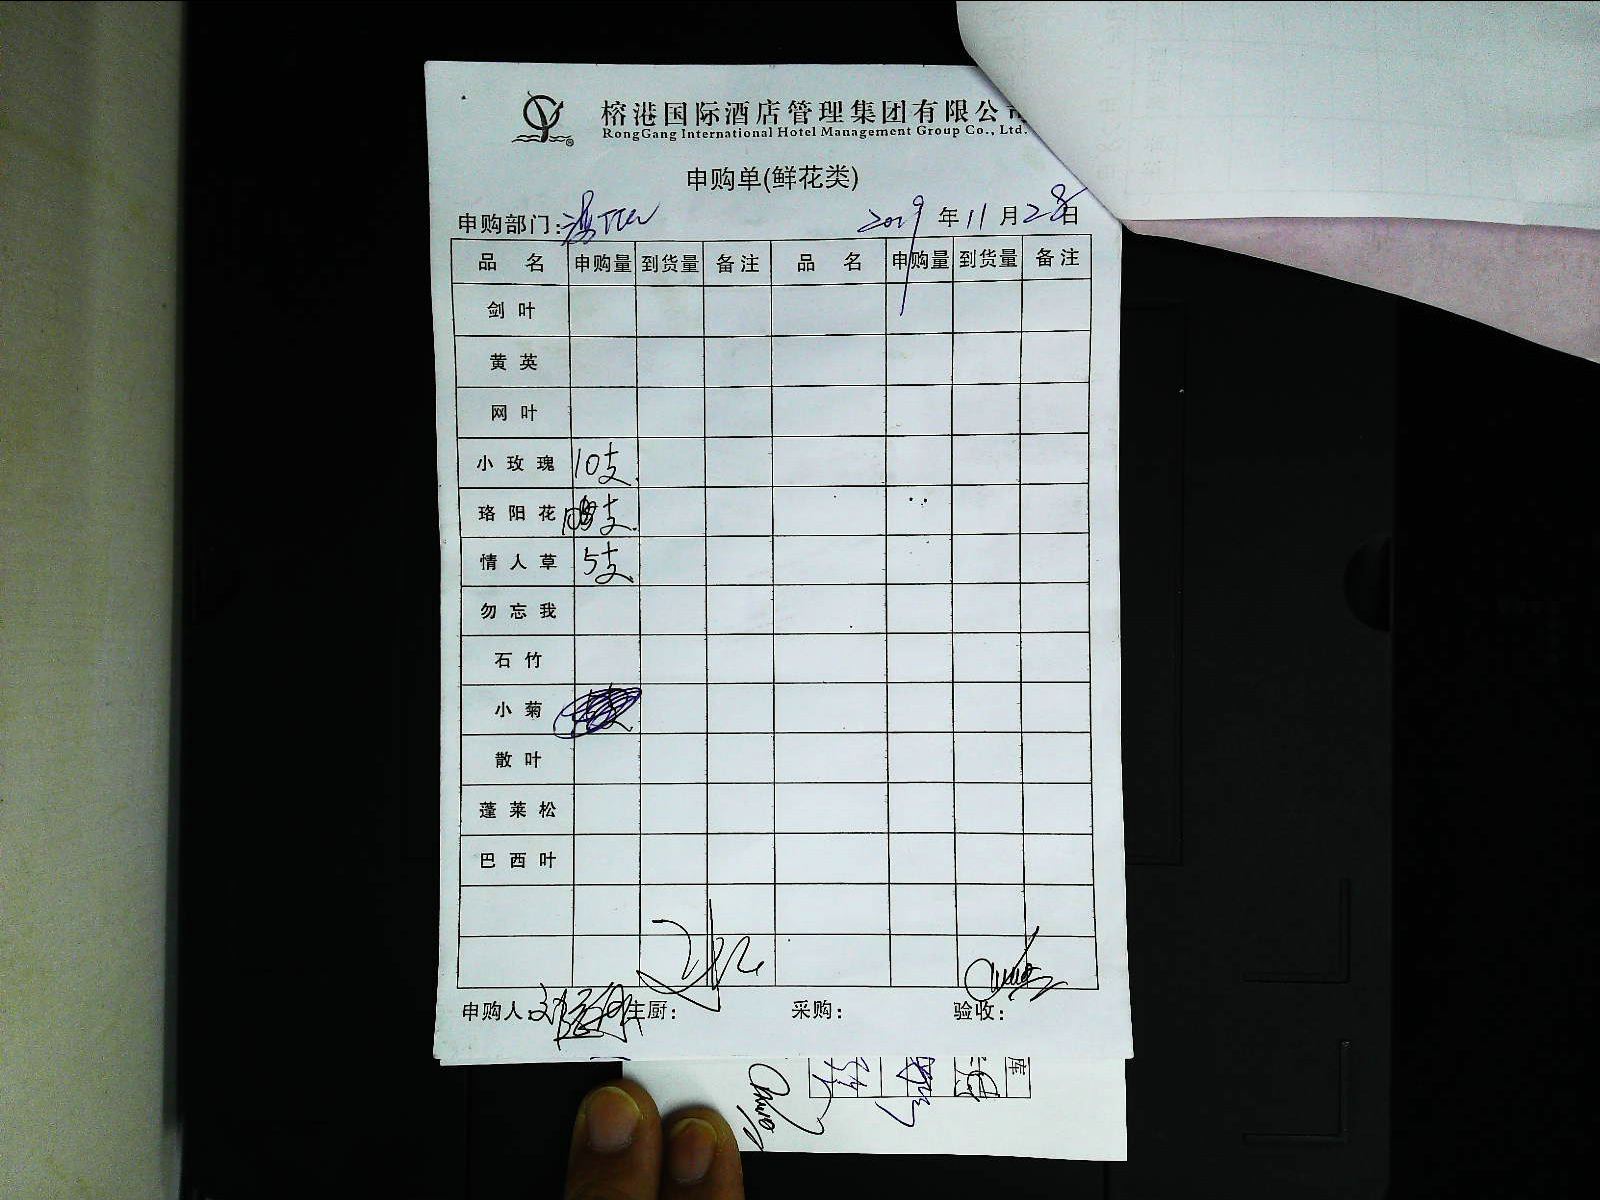 榕港国际酒店管理集团有限公
RongGang International Hotel Management Group Co., Ltd.
申购单(鲜花类)
申购部门: 2019年11月28日
品名 申购量 到货量 备注 品名 申购量 到货量 备注
剑叶
黄英
网叶
小玫瑰 10支
珞阳花 支
情人草 5支
勿忘我
石竹
小菊
散叶
蓬莱松
巴西叶
申购人: 主厨: 采购: 验收:
库